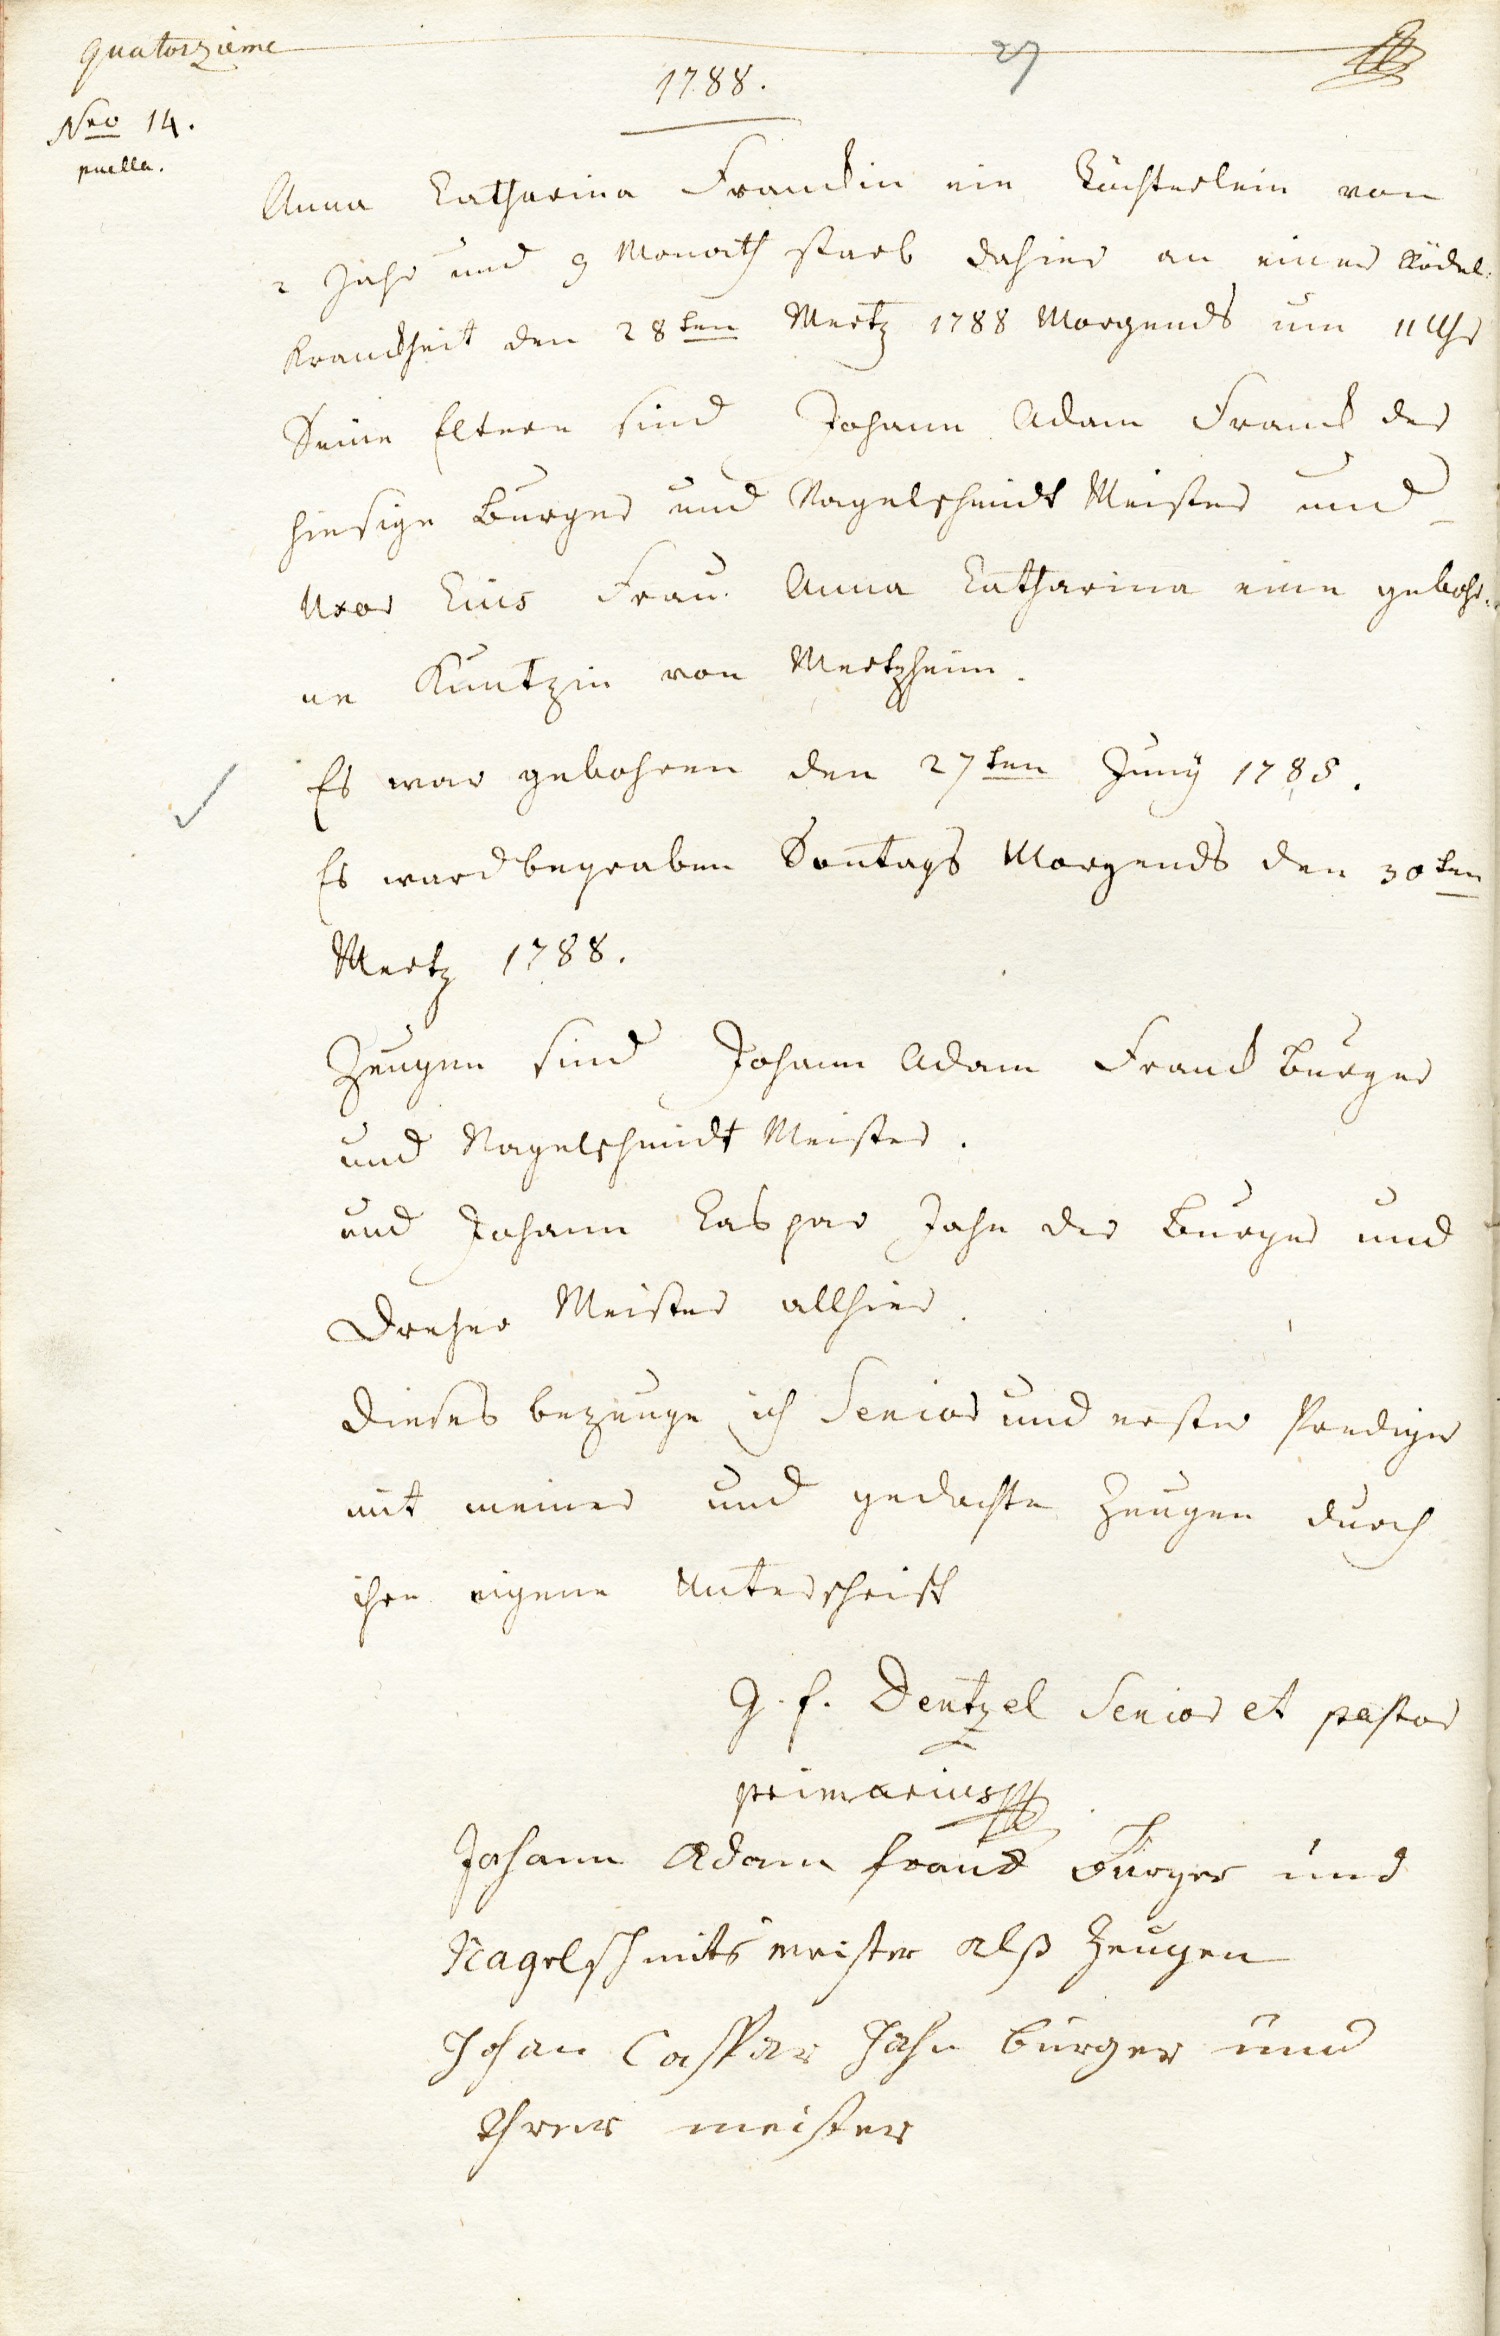 quatorzieme
27
1788.
Nro 14.
puella.
Anna Catharina Franckin ein Töchterlein von
2 Jahr und 9 Monath starb dahier an einer Rödel-
Kranckheit den 28ten Mertz 1788 Morgends um 11 Uhr
Seine Eltern sind Johann Adam Franck der
hiesige Burger und Nagelschmidt Meister und
Uxor Eius Frau Anna Catharina eine gebohr-
ne Kuntzin von Mertzheim.
Es war gebohren den 27ten Juny 1785.
Es ward begraben Sontags Morgends den 30ten
Mertz 1788.
Zeugen sind Johann Adam Franck Burger
und Nagelschmidt Meister.
und Johann Caspar Jahn der Burger und
Dreher Meister allhier.
Dieses bezeuge ich Senior und erster Prediger
mit meiner und gedachte Zeugen durch
ihre eigene Unterschrift
G. f. Dentzel Senior et pastor
primarius
Johann Adam franck Burger und
Nagelschmits meister alß Zeugen
Johan Caspar Jahn burger und
threr meister